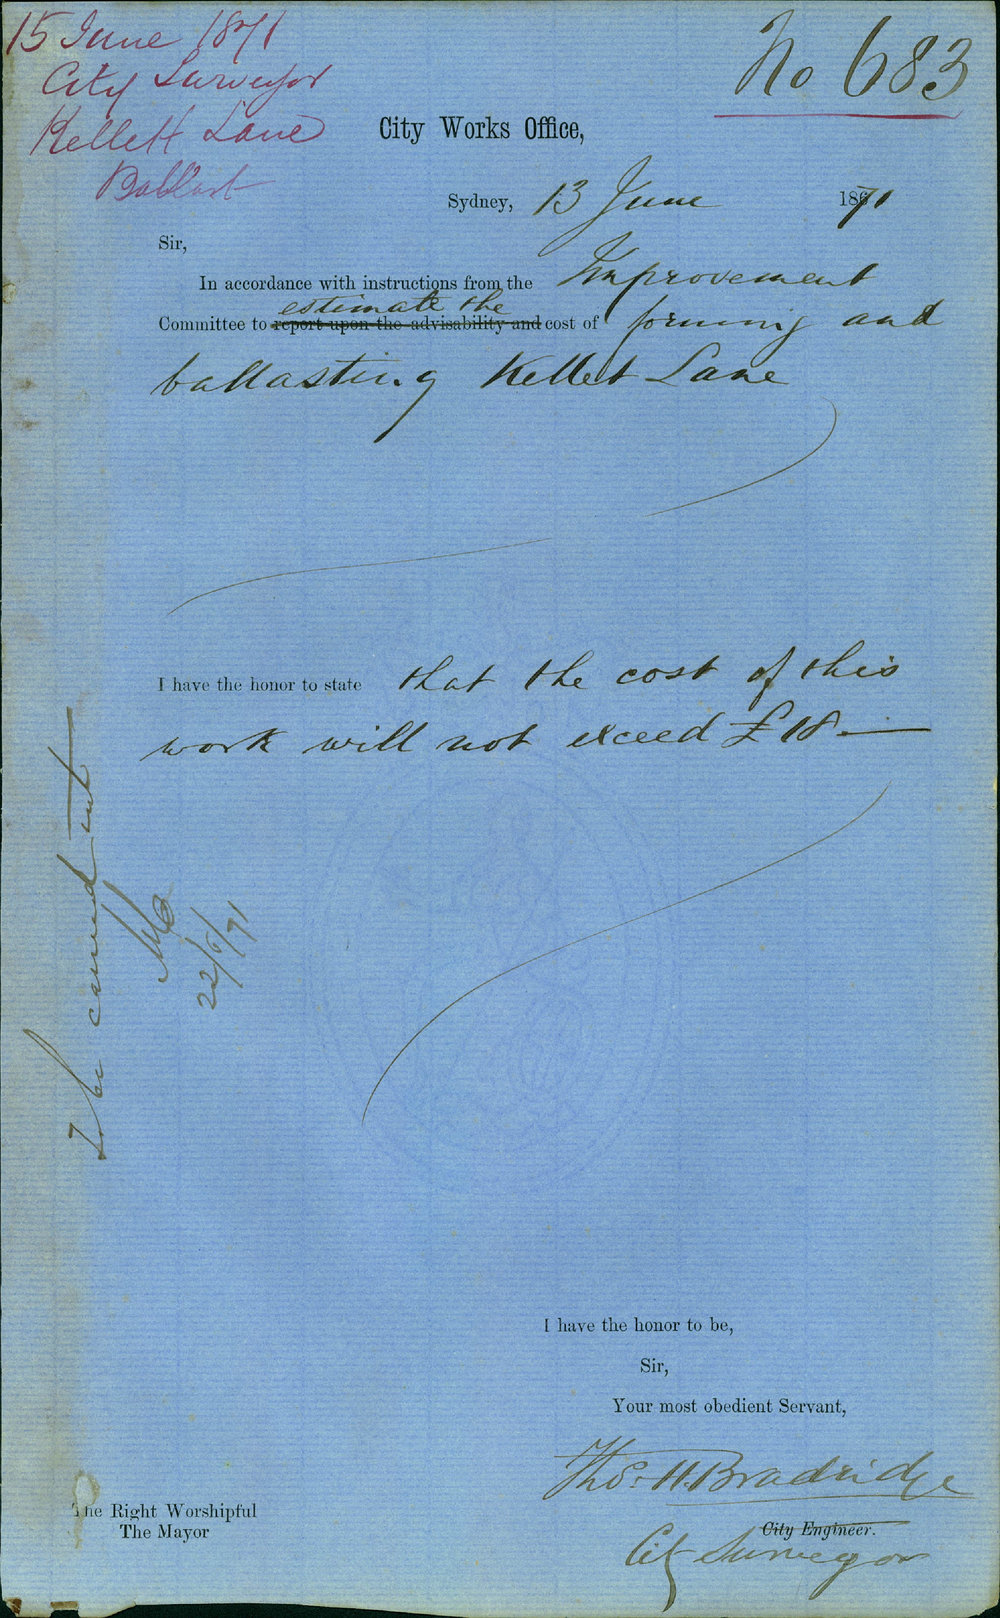 15 June 1871
City Surveyor
Kellett Lane
Ballast
No 683
City Works Office,
Sydney, 13 June 1871
Sir,
In accordance with instructions from the Improvement
estimate the
Committee to report upon the advisability and cost of forming and
ballasting Kellet Lane
I have the honor to state that the cost of this
work will not exceed £18.—
To be carried out
22/6/71
I have the honor to be,
Sir,
Your most obedient Servant,
Thos. H. Bradridge
City Engineer.
City Surveyor
The Right Worshipful
The Mayor